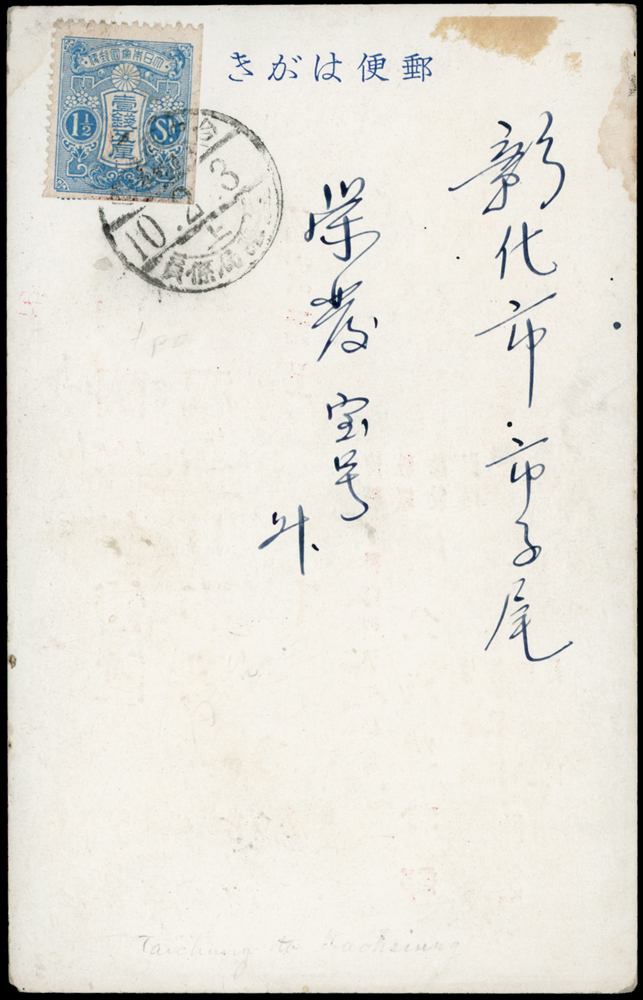 郵便はがき
大日本帝國郵便
壹錢五厘
1½ Sn.
10.2.3
彰化市市子尾
榮發宝号
升
Taichung to Kaohsiung